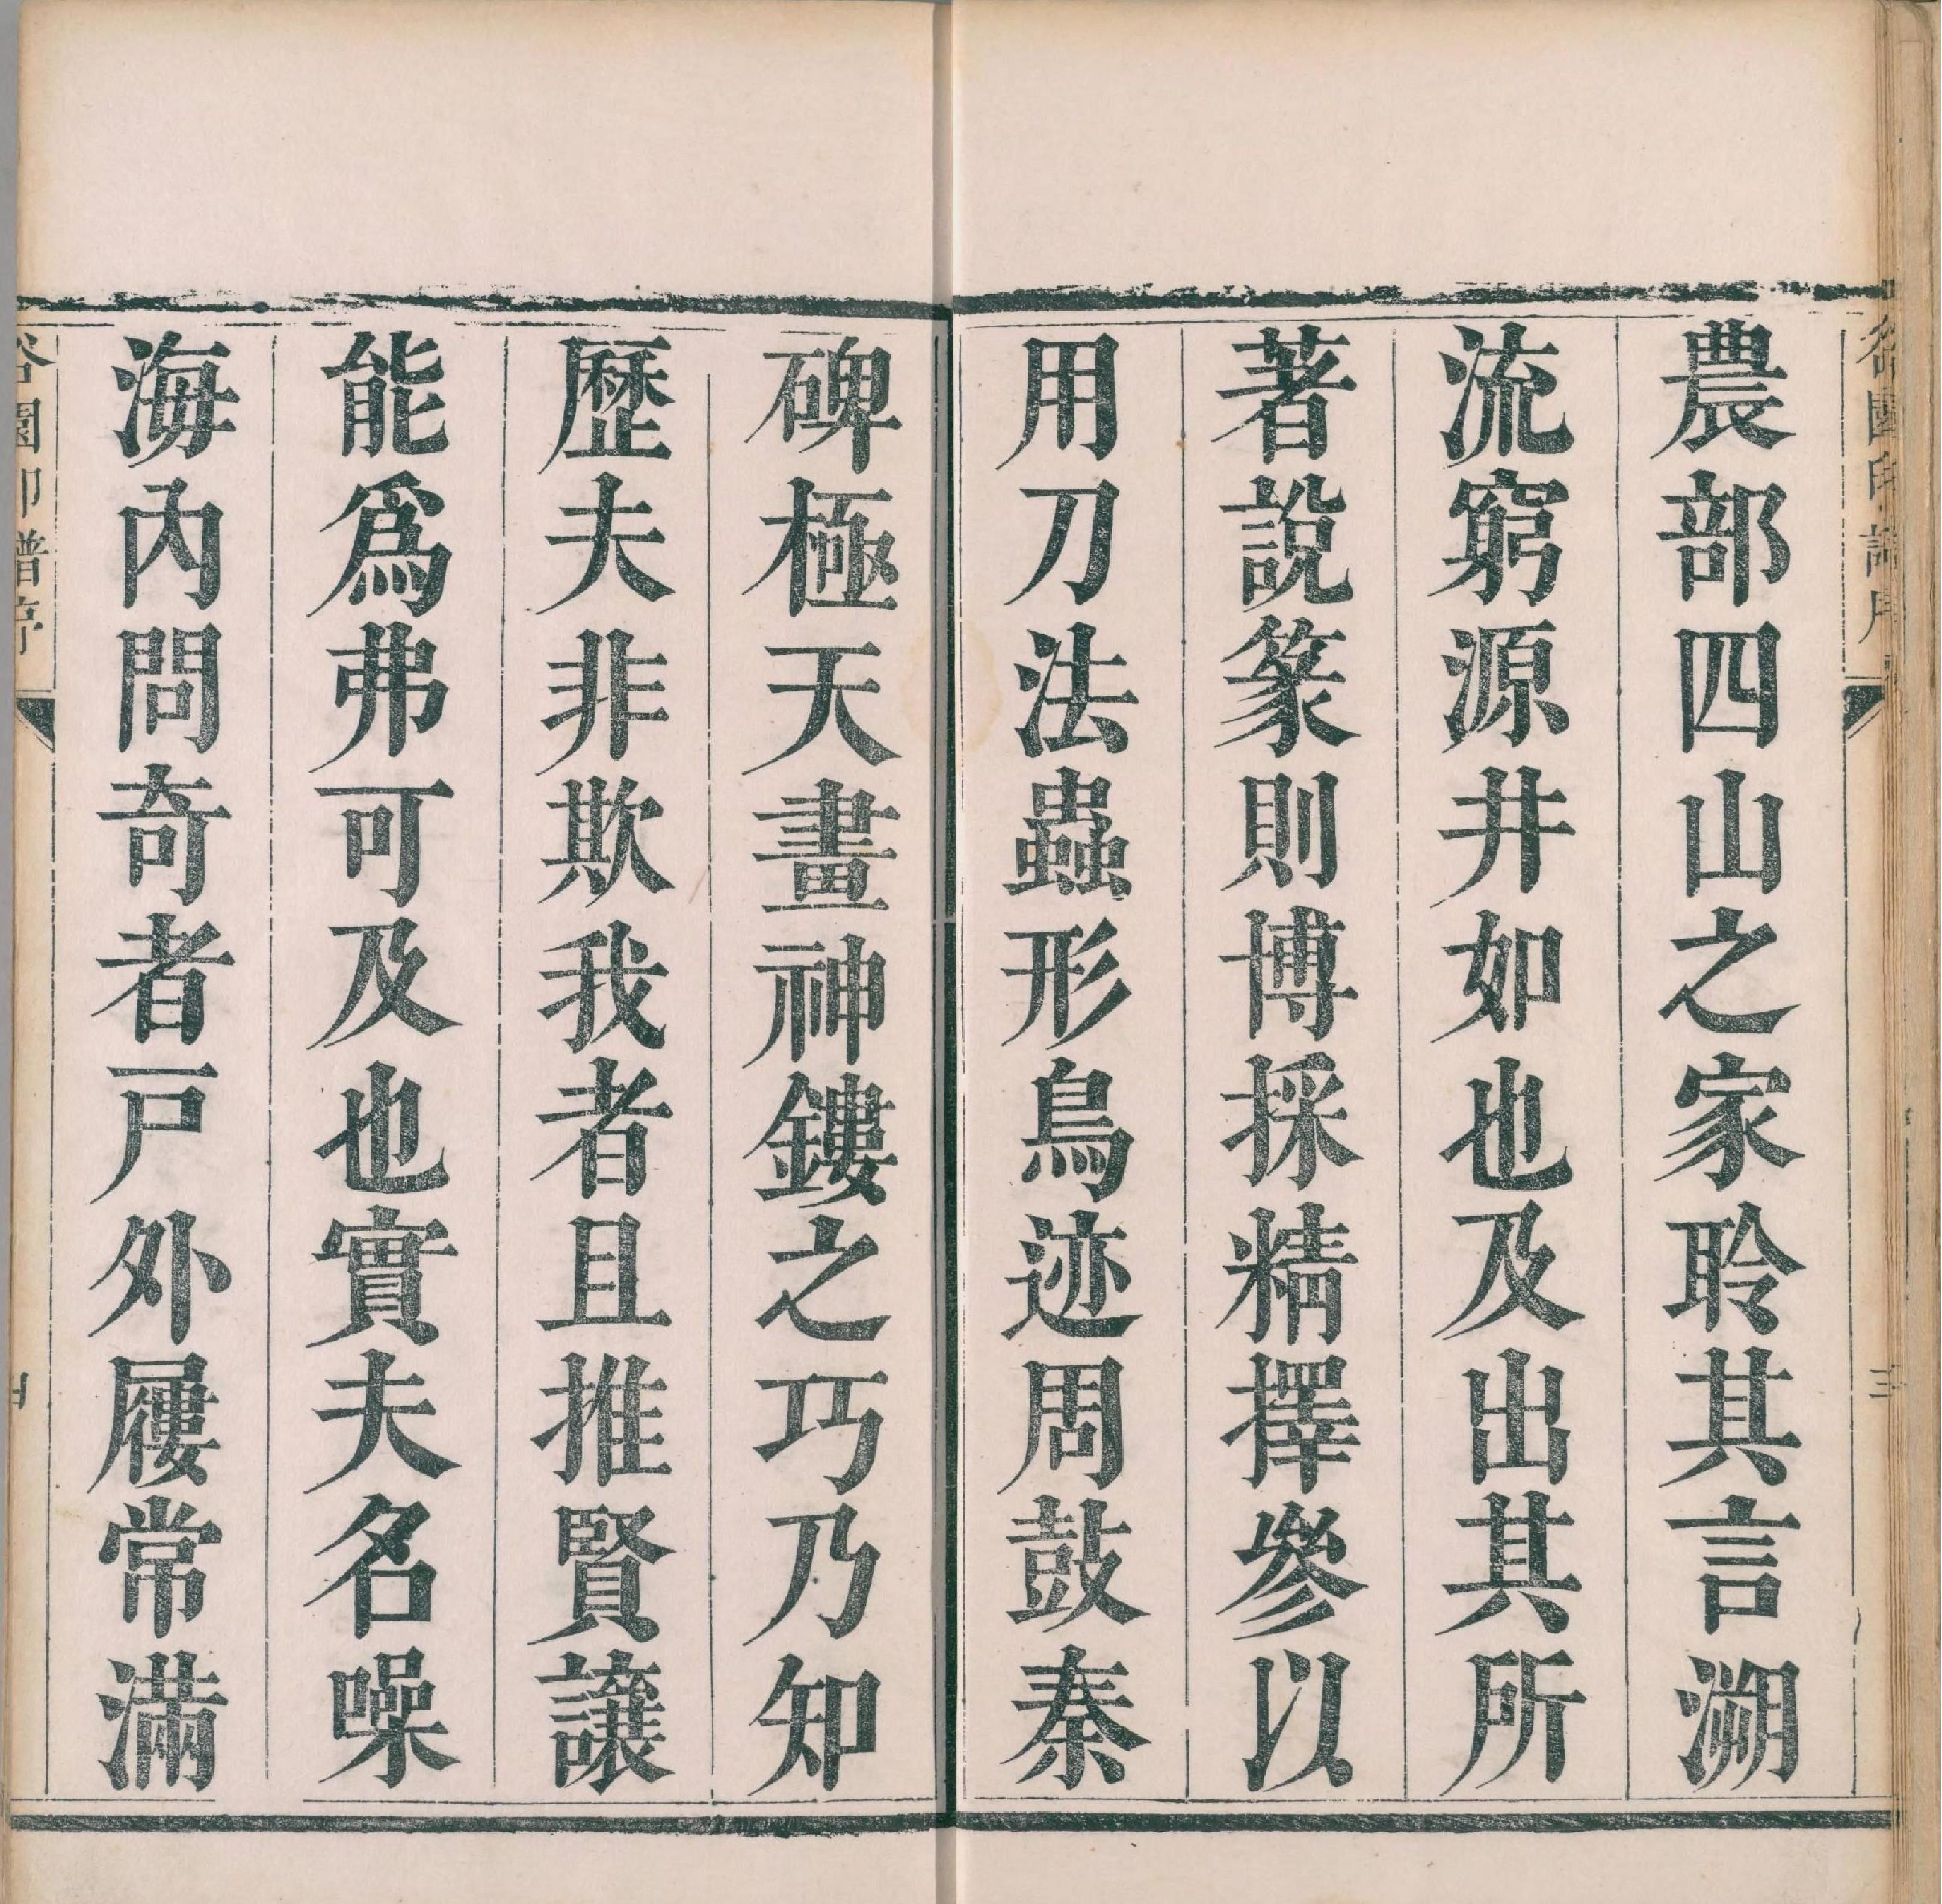 農部四山之家聆其言溯
流窮源井如也及出其所
著說篆則博採精擇參以
用刀法蟲形鳥迹周鼓秦
碑極天畫神鏤之巧乃知
歷夫非欺我者且推賢讓
能爲弗可及也實夫名噪
海內問奇者戸外屨常滿